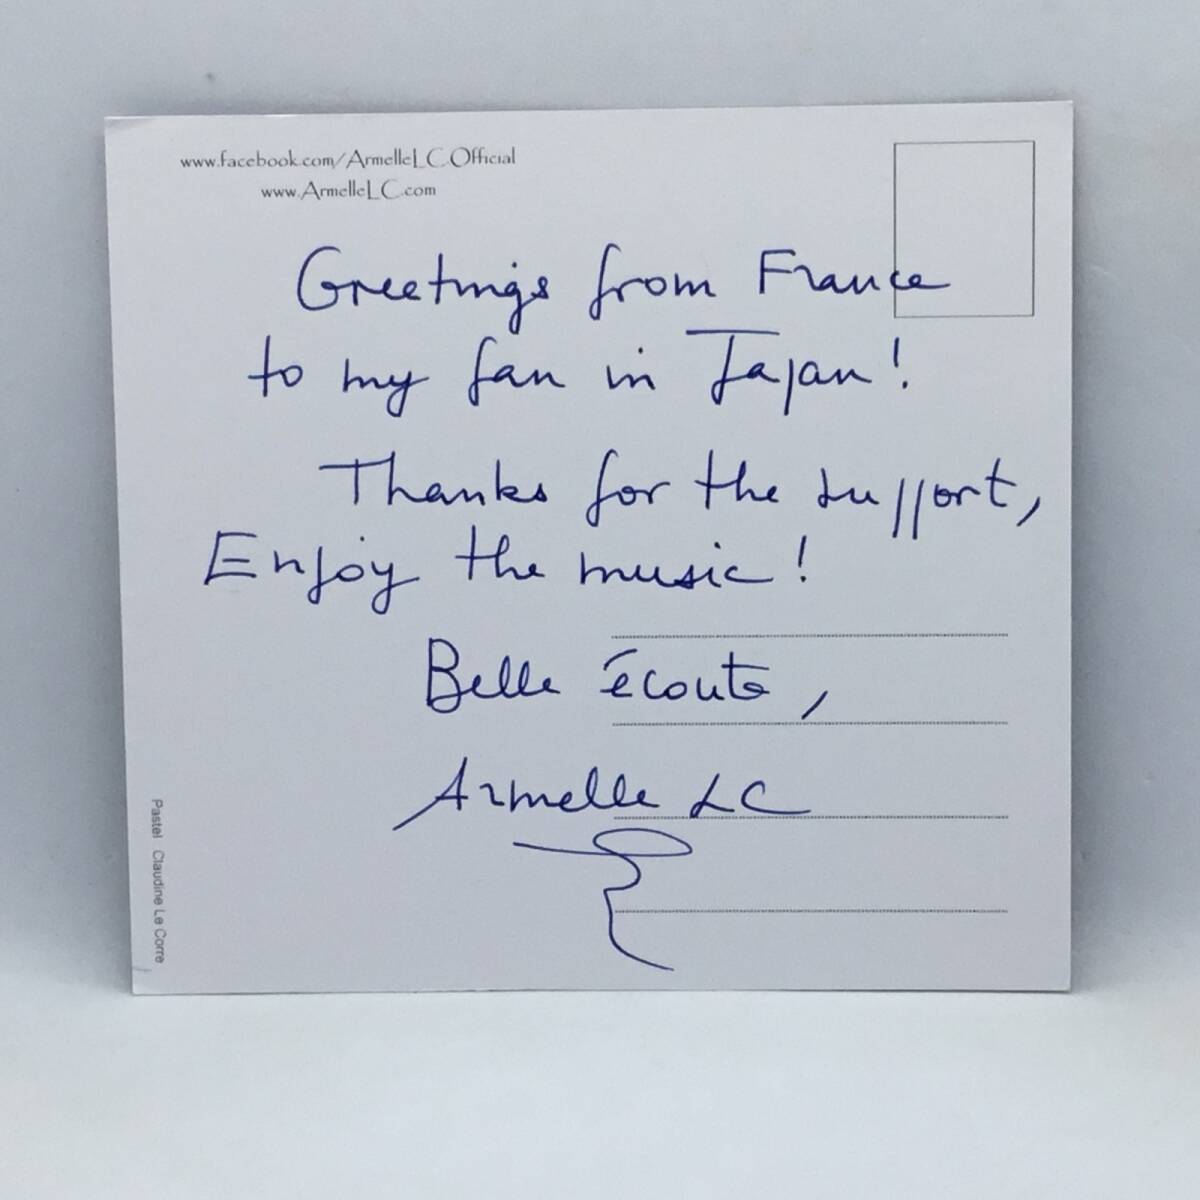 www.facebook.com/ArmelleLC.Official
www.ArmelleLC.com
Greetings from France
to my fan in Japan!
Thanks for the support,
Enjoy the music!
Belle écoute,
Armelle LC
Pastel Claudine Le Corre